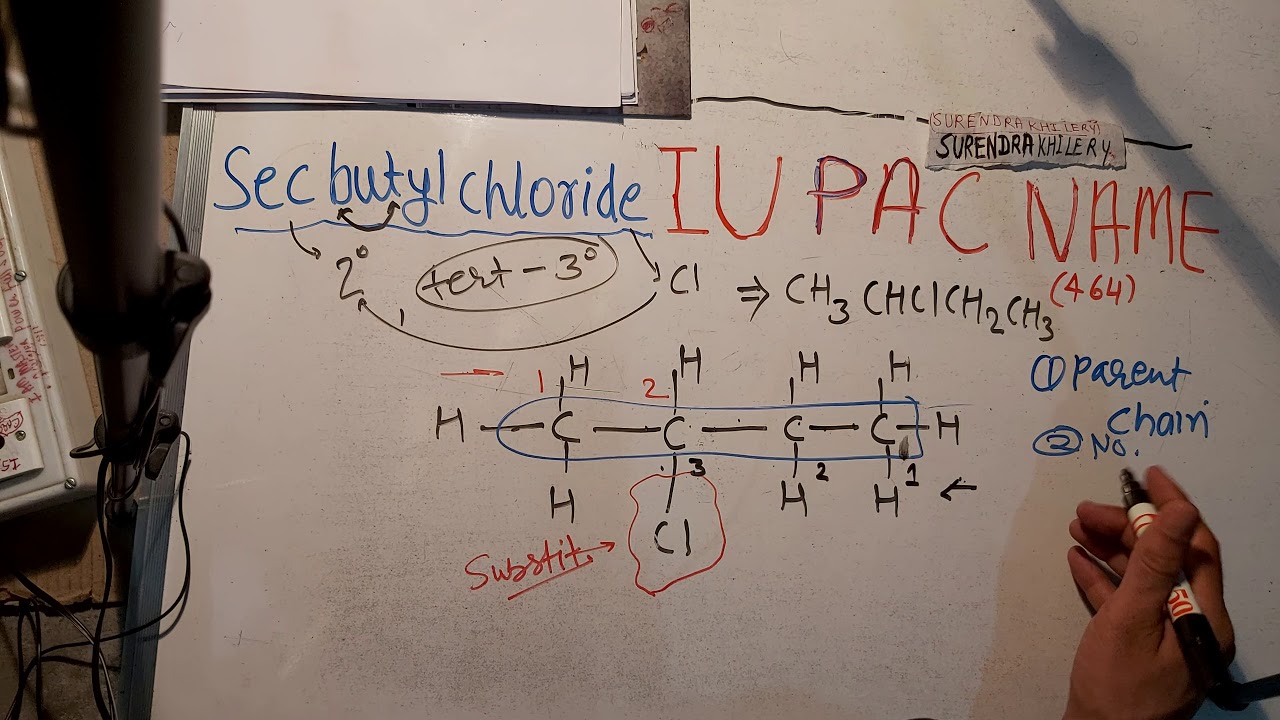 (SURENDRA KHILERY)
SURENDRA KHILERY
Sec butyl chloride IUPAC NAME
(464)
2° tert - 3° Cl ⇒ CH3 CHCl CH2 CH3
1 2
H H H H
H C C C C H
3 2 1
H H H
Cl
Substit.
① Parent
Chain
② No.